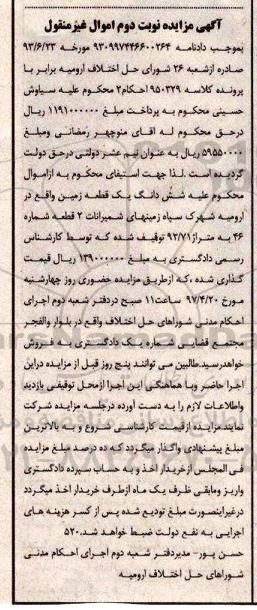 آگهی مزایده نوبت دوم اموال غیرمنقول
بموجب دادنامه ۹۳۰۹۹۷۴۴۶۶۰۰۲۶۴ مورخه ۹۳/۶/۲۳
صادره ازشعبه ۲۶ شورای حل اختلاف ارومیه برابر با
پرونده کلاسه ۹۵۰۳۲۹ احکام۲ محکوم علیه سیاوش
حسینی محکوم به پرداخت مبلغ ۱۱۹۱۰۰۰۰۰ ریال
درحق محکوم له اقای منوچهر رمضانی ومبلغ
۵۹۵۵۰۰۰ ریال به عنوان نیم عشر دولتی درحق دولت
گردیده است .لذا جهت استیفای محکوم به ازاموال
محکوم علیه شش دانگ یک قطعه زمین واقع در
ارومیه شهرک سپاه زمینهای شمیرانات ۲ قطعه شماره
۴۶ به متراژ ۹۲/۷۱ توقیف شده که توسط کارشناس
رسمی دادگستری به ۱۳۹۰۰۰۰۰۰ ریال قیمت
گذاری شده ،که ازطریق مزایده حضوری روز چهارشنبه
مورخ ۹۷/۴/۲۰ ساعت۱۱ صبح دردفتر شعبه دوم اجرای
احکام مدنی شوراهای حل اختلاف واقع در بلوار والفجر
مجتمع قضایی شماره یک دادگستری به فروش
خواهدرسید.طالبین می توانند پنج روز قبل از مزایده دراین
اجرا حاضر وبا هماهنگی این اجرا ازمحل توقیفی بازدید
واطلاعات لازم را به دست اورده درجلسه مزایده شرکت
نمایند.مزایده ازقیمت کارشناسی شروع و به بالاترین
مبلغ پیشنهادی واگذار میگردد که ده درصد مبلغ مزایده
فی المجلس ازخریدار اخذ و به حساب سپرده دادگستری
واریز ومابقی ظرف یک ماه ازطرف خریدار اخذ میگردد
درغیراینصورت مبلغ تودیع شده پس از کسر هزینه های
اجرایی به نفع دولت ضبط خواهد شد.۵۲۰
حسن پور- مدیردفتر شعبه دوم اجرای احکام مدنی
شوراهای حل اختلاف ارومیه